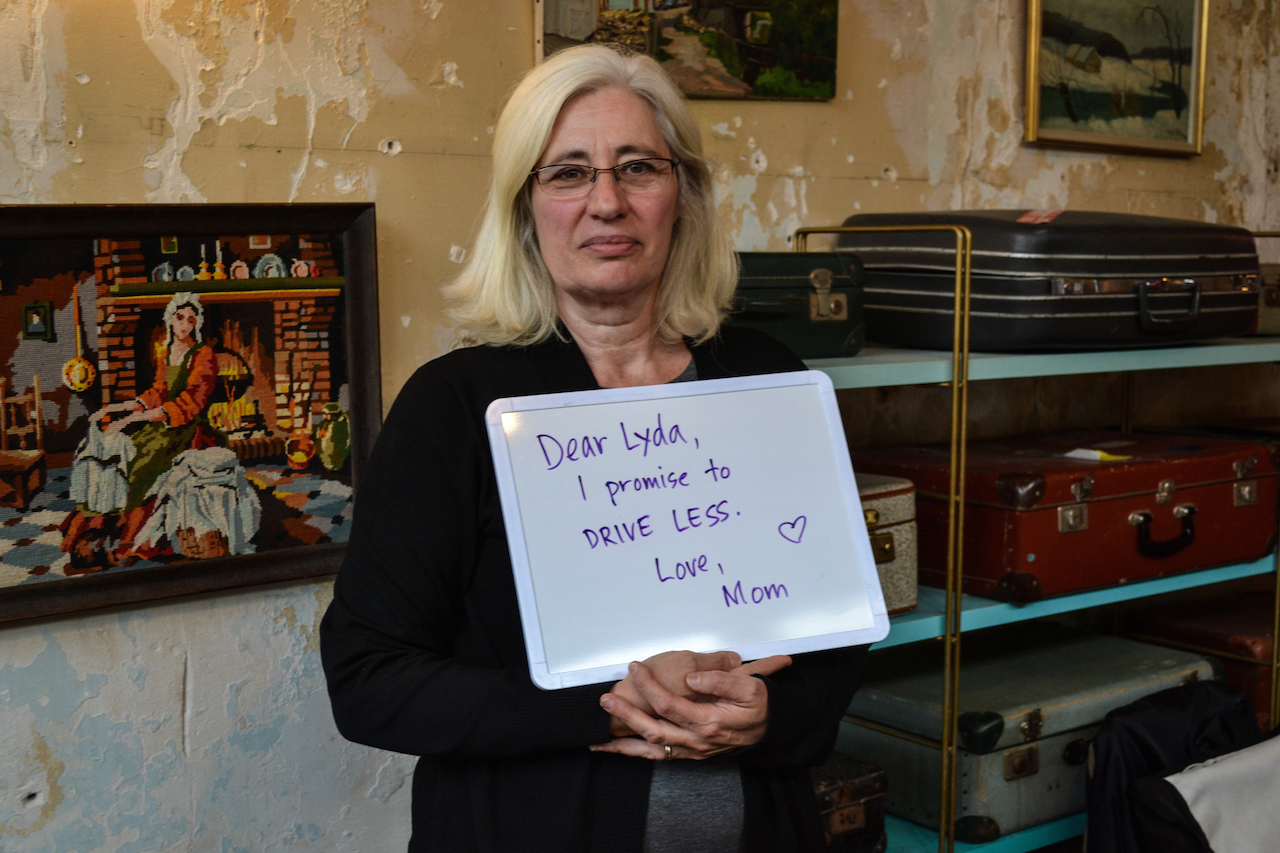 Dear Lyda,
I promise to
DRIVE LESS.
Love,
Mom